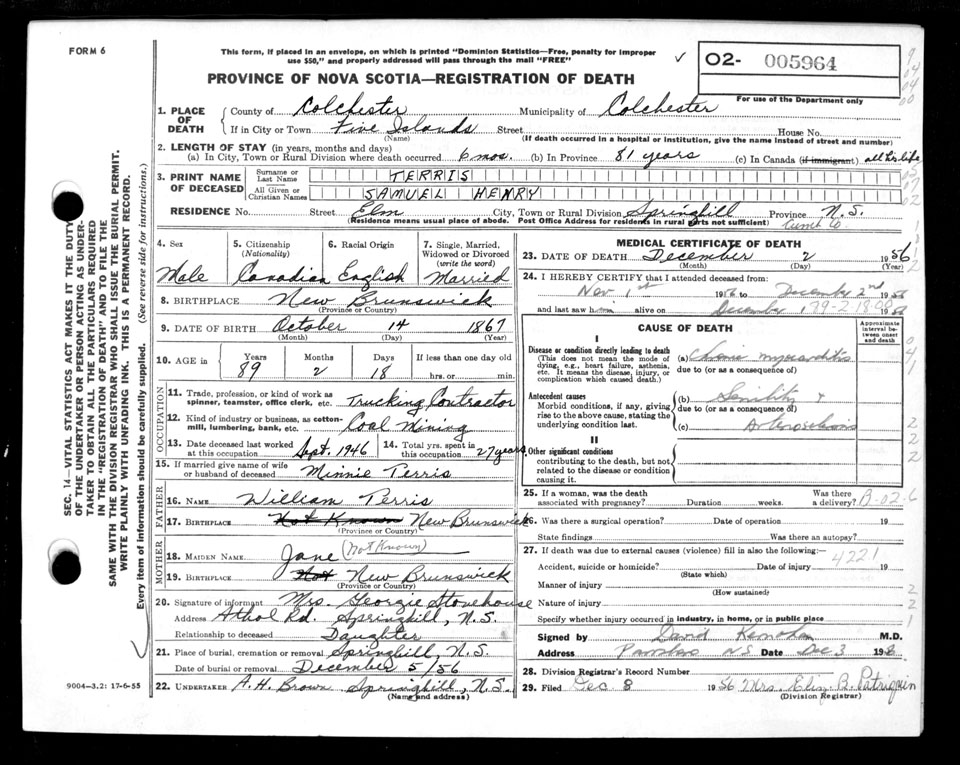 FORM 6
This form, if placed in an envelope, on which is printed "Dominion Statistics—Free, penalty for improper
use $50," and properly addressed will pass through the mail "FREE"
✓ 02- 005964
For use of the Department only
PROVINCE OF NOVA SCOTIA—REGISTRATION OF DEATH
1. PLACE OF DEATH County of Colchester Municipality of Colchester
If in City or Town Five Islands Street House No.
(Name) (If death occurred in a hospital or institution, give the name instead of street and number)
2. LENGTH OF STAY (in years, months and days)
(a) In City, Town or Rural Division where death occurred 6 mos. (b) In Province 81 years (c) In Canada (if immigrant) all his life
3. PRINT NAME OF DECEASED Surname or Last Name TERRIS
All Given or Christian Names SAMUEL HENRY
RESIDENCE No. Street Elm City, Town or Rural Division Springhill Province N.S.
(Residence means usual place of abode. Post Office Address for residents in rural parts not sufficient)
4. Sex Male
5. Citizenship (Nationality) Canadian
6. Racial Origin English
7. Single, Married, Widowed or Divorced (write the word) Married
8. BIRTHPLACE New Brunswick
(Province or Country)
9. DATE OF BIRTH October 14 1867
(Month) (Day) (Year)
10. AGE in Years Months Days If less than one day old
89 2 18 hrs. or min.
OCCUPATION
11. Trade, profession, or kind of work as spinner, teamster, office clerk, etc. Trucking Contractor
12. Kind of industry or business, as cotton-mill, lumbering, bank, etc. Coal Mining
13. Date deceased last worked at this occupation Sept. 1946
14. Total yrs. spent in this occupation 27 years
15. If married give name of wife or husband of deceased Minnie Terris
FATHER
16. NAME William Terris
17. BIRTHPLACE Not Known New Brunswick
(Province or Country)
MOTHER
18. MAIDEN NAME Jane (Not Known)
19. BIRTHPLACE Not New Brunswick
(Province or Country)
20. Signature of informant Mrs. Georgie Stonehouse
Address Athol Rd. Springhill, N.S.
Relationship to deceased Daughter
21. Place of burial, cremation or removal Springhill, N.S.
Date of burial or removal December 5/56
22. UNDERTAKER A.H. Brown Springhill, N.S.
(Name and address)
MEDICAL CERTIFICATE OF DEATH
23. DATE OF DEATH December 2 1956
(Month) (Day) (Year)
24. I HEREBY CERTIFY that I attended deceased from:
Nov 1st 1956 to December 2nd 1956
and last saw him alive on December
CAUSE OF DEATH
Approximate interval between onset and death
I
Disease or condition directly leading to death (a) Chronic myocarditis
(This does not mean the mode of dying, e.g., heart failure, asthenia, etc. It means the disease, injury, or complication which caused death.)
due to (or as a consequence of)
Antecedent causes (b) Senility &
Morbid conditions, if any, giving rise to the above cause, stating the underlying condition last.
due to (or as a consequence of)
(c) Arteriosclerosis
II
Other significant conditions
contributing to the death, but not related to the disease or condition causing it.
25. If a woman, was the death associated with pregnancy? Duration weeks. Was there a delivery?
B-02-6
26. Was there a surgical operation? Date of operation 19
State findings Was there an autopsy?
27. If death was due to external causes (violence) fill in also the following:—
4221
Accident, suicide or homicide? Date of injury 19
(State which)
Manner of injury
(How sustained)
Nature of injury
Specify whether injury occurred in industry, in home, or in public place
Signed by David M.D.
Address N.S Date Dec 3 19
28. Division Registrar's Record Number
29. Filed Dec. 8 1956 Mrs. Eliz. B. Patriquin
(Division Registrar)
SEC. 14—VITAL STATISTICS ACT MAKES IT THE DUTY
OF THE UNDERTAKER OR PERSON ACTING AS UNDER-
TAKER TO OBTAIN ALL THE PARTICULARS REQUIRED
IN THE "REGISTRATION OF DEATH" AND TO FILE THE
SAME WITH THE DIVISION REGISTRAR WHO SHALL ISSUE THE BURIAL PERMIT.
WRITE PLAINLY WITH UNFADING INK. THIS IS A PERMANENT RECORD.
Every item of information should be carefully supplied. (See reverse side for instructions.)
9004—3.2: 17-6-55